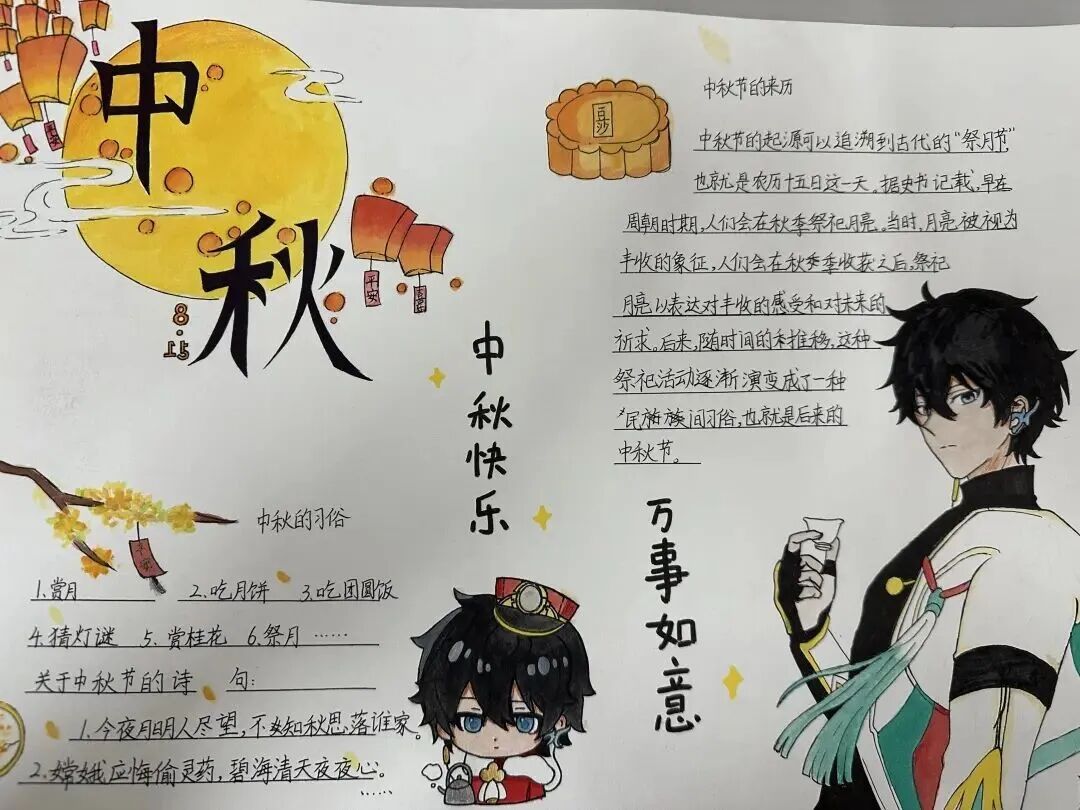 中秋
8.15
平安
平安
喜
平安
中秋快乐
万事如意
豆沙
中秋节的来历
中秋节的起源可以追溯到古代的“祭月节”
也就是农历十五日这一天。据史书记载,早在
周朝时期,人们会在秋季祭祀月亮。当时,月亮被视为
丰收的象征,人们会在秋季收获之后,祭祀
月亮以表达对丰收的感受和对未来的
祈求。后来,随时间的推移,这种
祭祀活动逐渐演变成了一种
民族间习俗,也就是后来的
中秋节。
中秋的习俗
1.赏月 2.吃月饼 3.吃团圆饭
4.猜灯谜 5.赏桂花 6.祭月……
关于中秋节的诗句:
1.今夜月明人尽望,不知秋思落谁家。
2.嫦娥应悔偷灵药,碧海清天夜夜心。
……